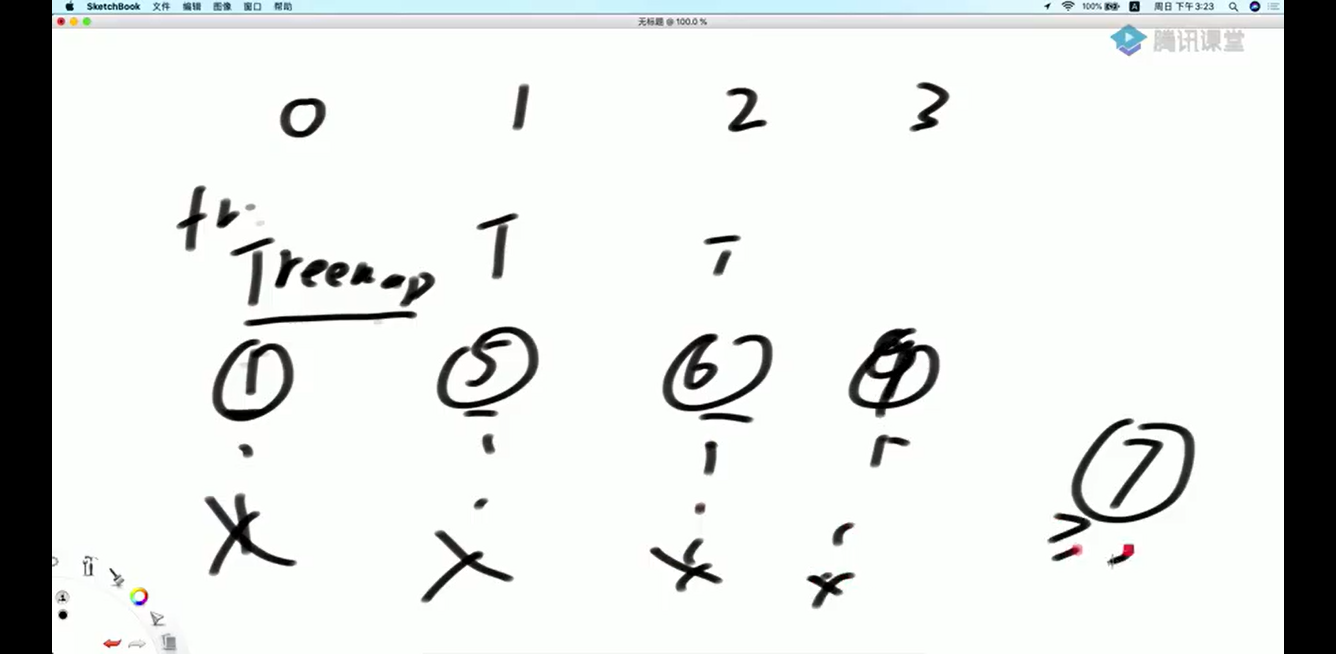 SketchBook 文件 编辑 图像 窗口 帮助 100% A 周日 下午 3:23
无标题 @ 100.0 %
腾讯课堂
0 1 2 3
tr
Treemap T T
1 5 6 9
7
X X X X
≥